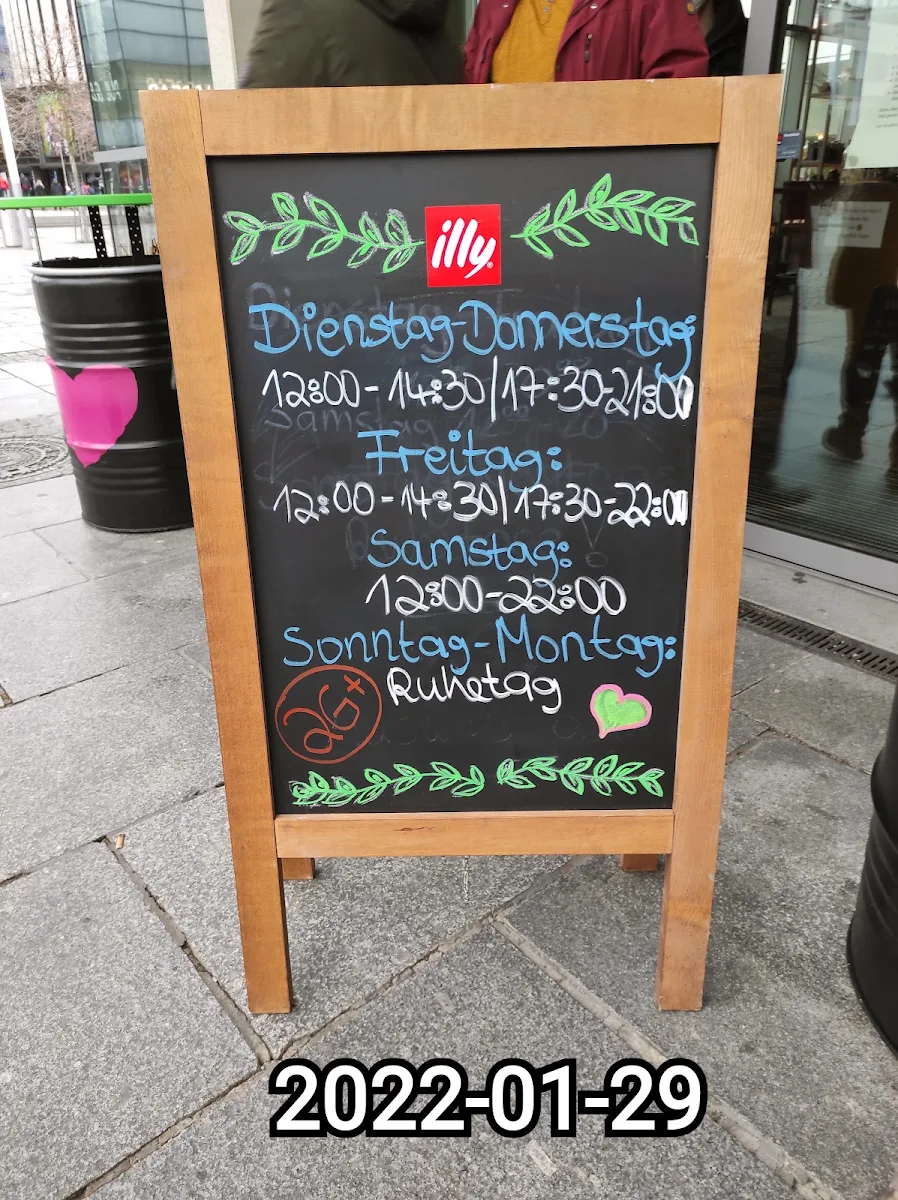 illy
Dienstag-Donnerstag:
12:00 - 14:30 | 17:30-21:00
Freitag:
12:00 - 14:30 | 17:30-22:00
Samstag:
12:00-22:00
Sonntag-Montag:
Ruhetag
2G+
2022-01-29